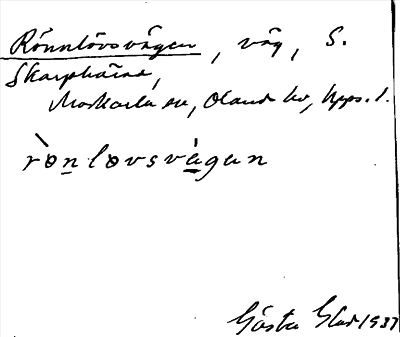 Rönnlövsvägen, väg, S.
Skarpkärne,
Morkarla sn, Oland hd, Upps. l.
rònlovsvàgan
Gösta Glad 1937